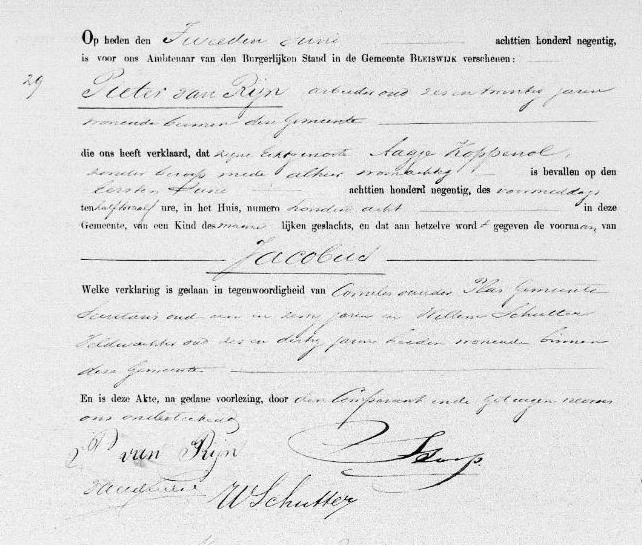 Op heden den Tweeden Juni achttien honderd negentig,
is voor ons Ambtenaar van den Burgerlijken Stand in de Gemeente BLEISWIJK verschenen:
29 Pieter van Rijn arbeider oud zes en twintig jaren
wonende binnen deze Gemeente
die ons heeft verklaard, dat zijne Echtgenoote Aagje Koppenol,
zonder beroep mede alhier woonachtig is bevallen op den
eersten Juni achttien honderd negentig, des voormiddags
ten half twaalf ure, in het Huis, numero honderd acht in deze
Gemeente, van een Kind des manne lijken geslachts, en dat aan hetzelve wordt gegeven de voornaam van
Jacobus
Welke verklaring is gedaan in tegenwoordigheid van Cornelis van der Plas Gemeente
Secretaris oud een en zestig jaren en Willem Schutter
Veldwachter oud zes en dertig jaren beiden wonende binnen
deze Gemeente
En is deze Akte, na gedane voorlezing, door den Comparant en de Getuigen nevens
ons onderteekend
P van Rijn
W Schutter